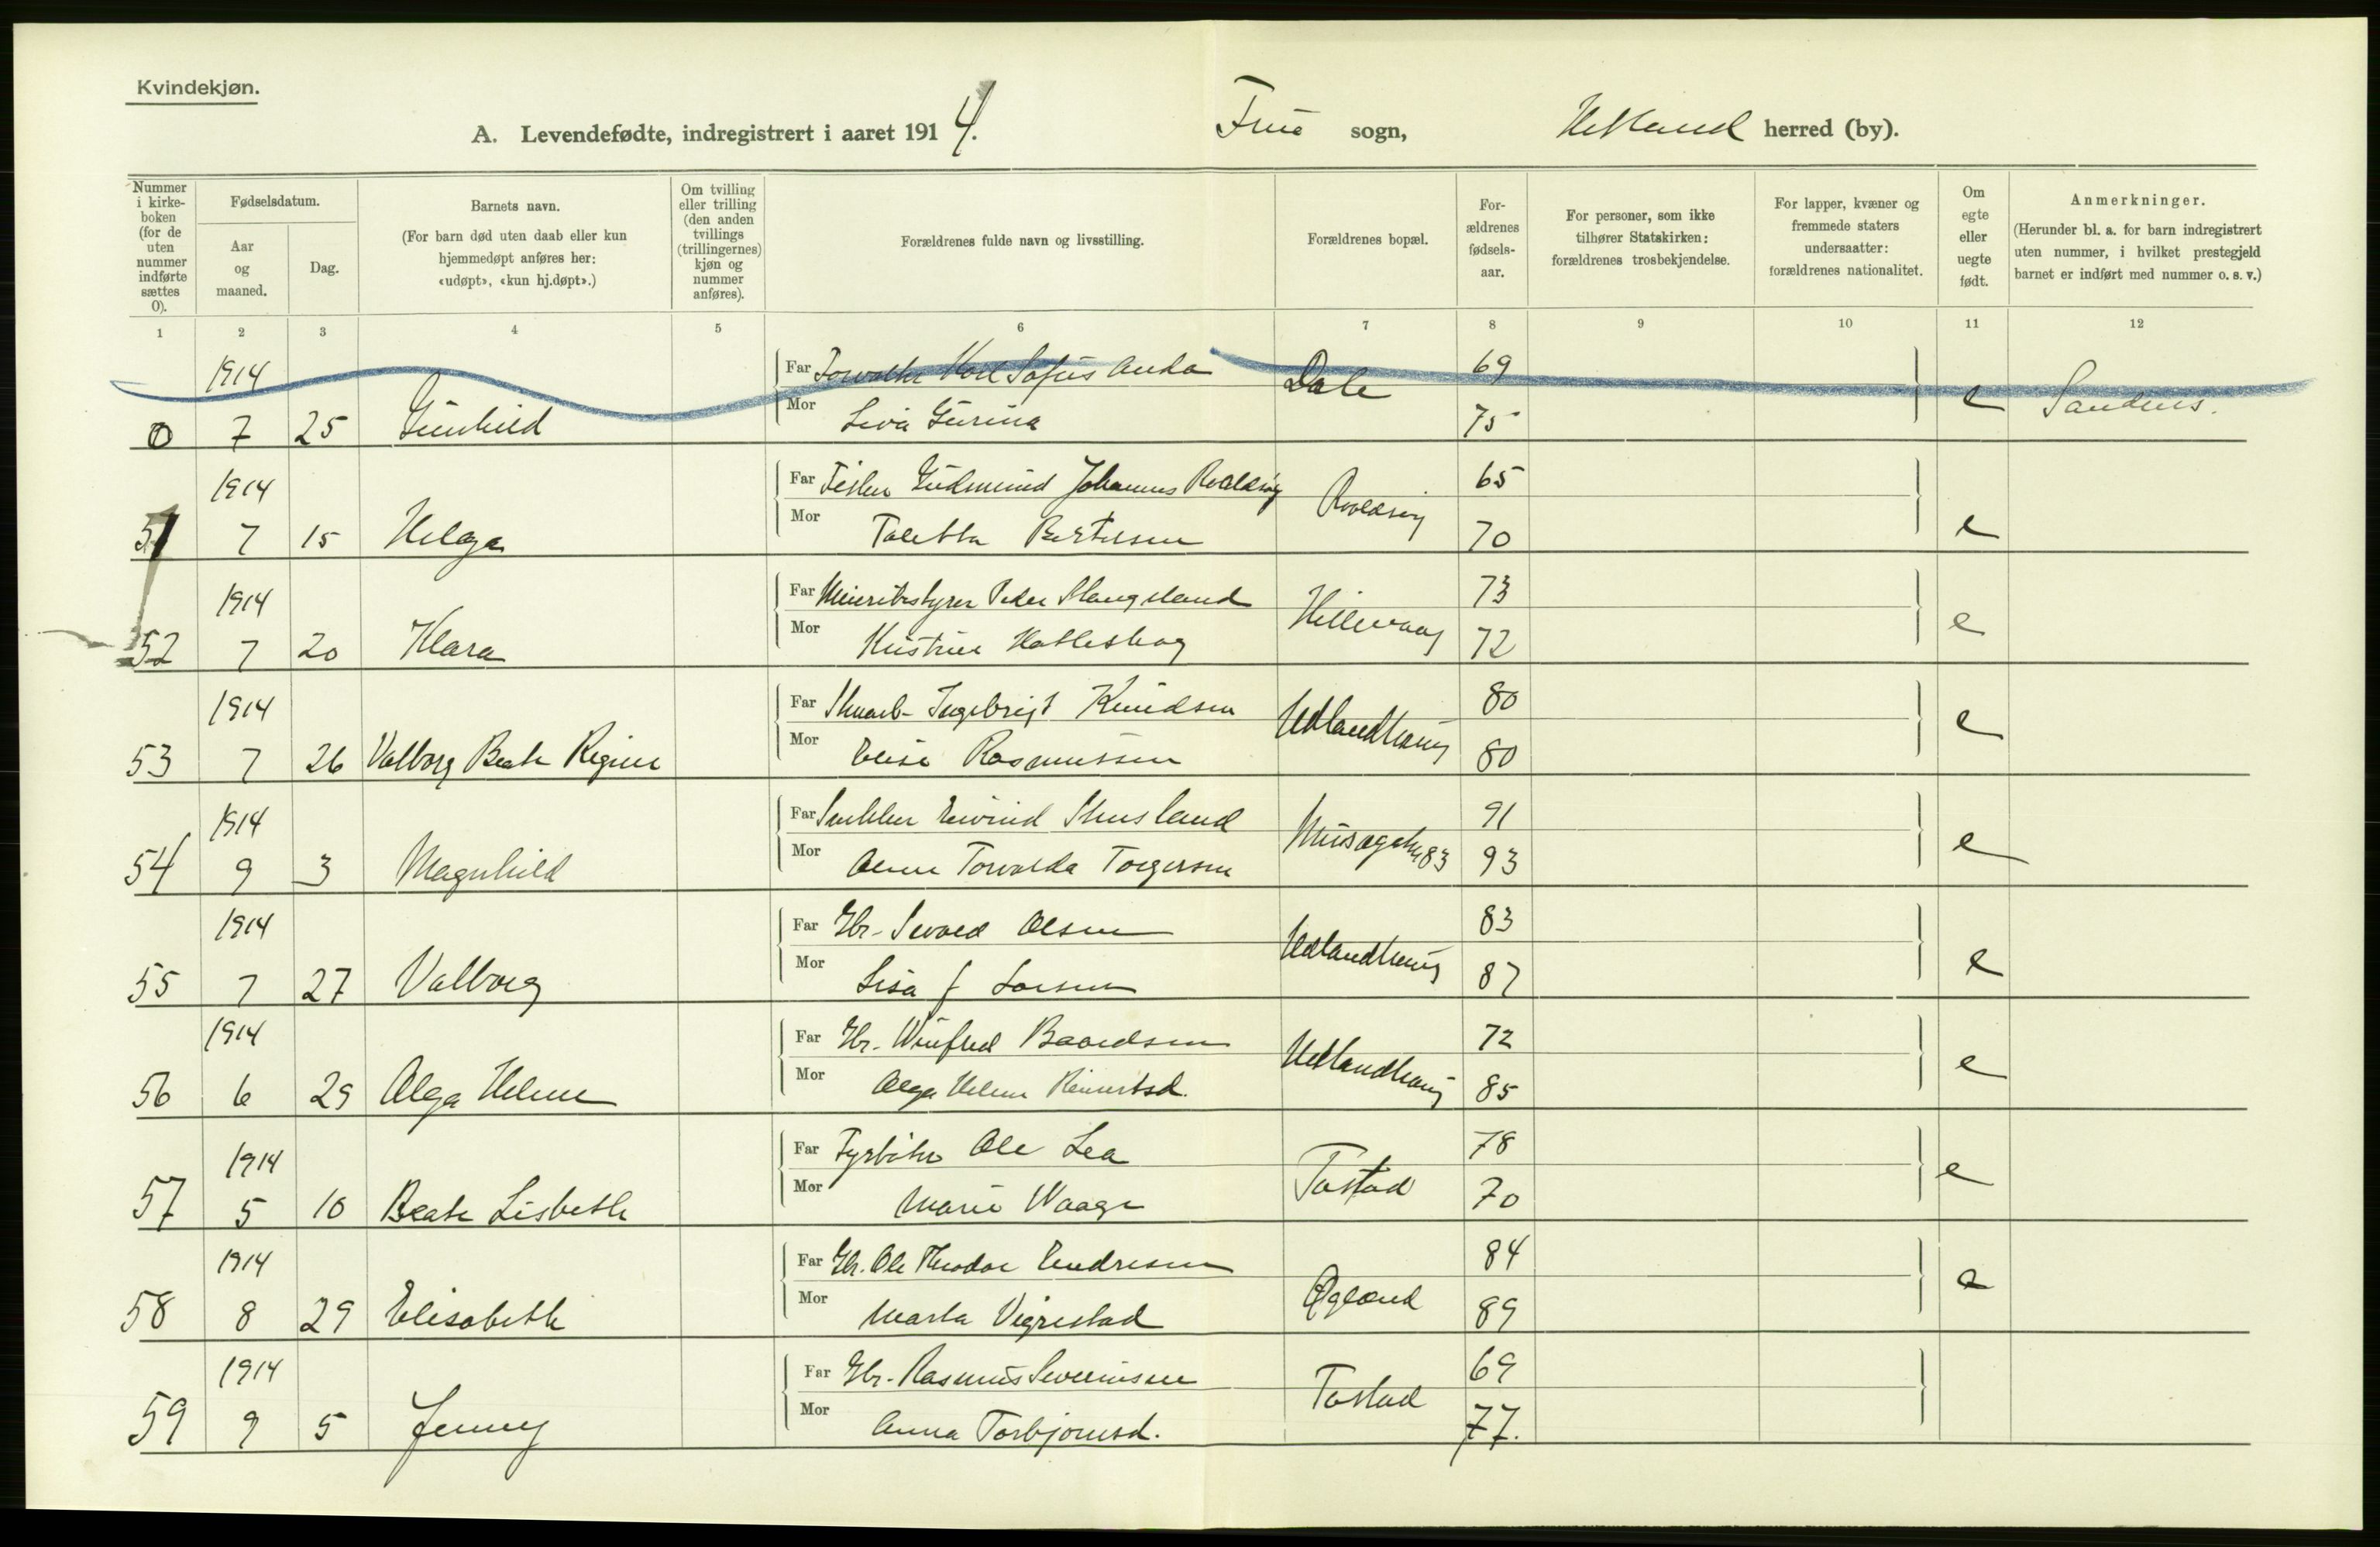 Kvindekjøn.
A. Levendefødte, indregistrert i aaret 1914. Frue sogn, Hetland herred (by).
Nummer i kirke-boken (for de uten nummer indførte sættes 0).
Fødselsdatum.
Aar og maaned.
Dag.
Barnets navn.
(For barn død uten daab eller kun hjemmedøpt anføres her: «udøpt», «kun hj.døpt».)
Om tvilling eller trilling (den anden tvillings (trillingernes) kjøn og nummer anføres).
Forældrenes fulde navn og livsstilling.
Forældrenes bopæl.
For-ældrenes fødsels-aar.
For personer, som ikke tilhører Statskirken: forældrenes trosbekjendelse.
For lapper, kvæner og fremmede staters undersaatter: forældrenes nationalitet.
Om egte eller uegte født.
Anmerkninger.
(Herunder bl. a. for barn indregistrert uten nummer, i hvilket prestegjeld barnet er indført med nummer o. s. v.)
1 2 3 4 5 6 7 8 9 10 11 12
1914 Far Karl Sofus Anda Dale 69
0 7 25 Gunhild Mor Gurina 75 e Sandnes.
1914 Far Fisker Gudmund Johannes Roaldsøy Roaldsøy 65
51 7 15 Helga Mor Taletta Bertelsen 70 e
1914 Far Meieribestyrer Peder Slangsland Hillevaag 73
52 7 20 Klara Mor Kristine 72 e
1914 Far Ingebrigt Knudsen Hetlandhaug 80
53 7 26 Valborg Beate Regine Mor Elise Rasmussen 80 e
1914 Far Snekker Eivind Musegaten 83 91
54 9 3 Magnhild Mor Anne Torvalda Torgersen 93 e
1914 Far Gbr. Sevald Olsen Hetlandhaug 83
55 7 27 Valborg Mor Lisa J Larsen 87 e
1914 Far Gbr. Winfred Baardsen Hetlandhaug 72
56 6 29 Olga Helene Mor Olga Helene Reinertsd. 85 e
1914 Far Fyrbøter Ole Lea Tastad 78
57 5 10 Beate Lisbeth Mor Marie Waage 70 e
1914 Far Gbr. Ole Theodor Endresen Øgland 84
58 8 29 Elisabeth Mor Marta Vigrestad 89 e
1914 Far Gbr. Rasmus Severinsen Tastad 69
59 9 5 Jenny Mor Anna Torbjørnsd. 77.